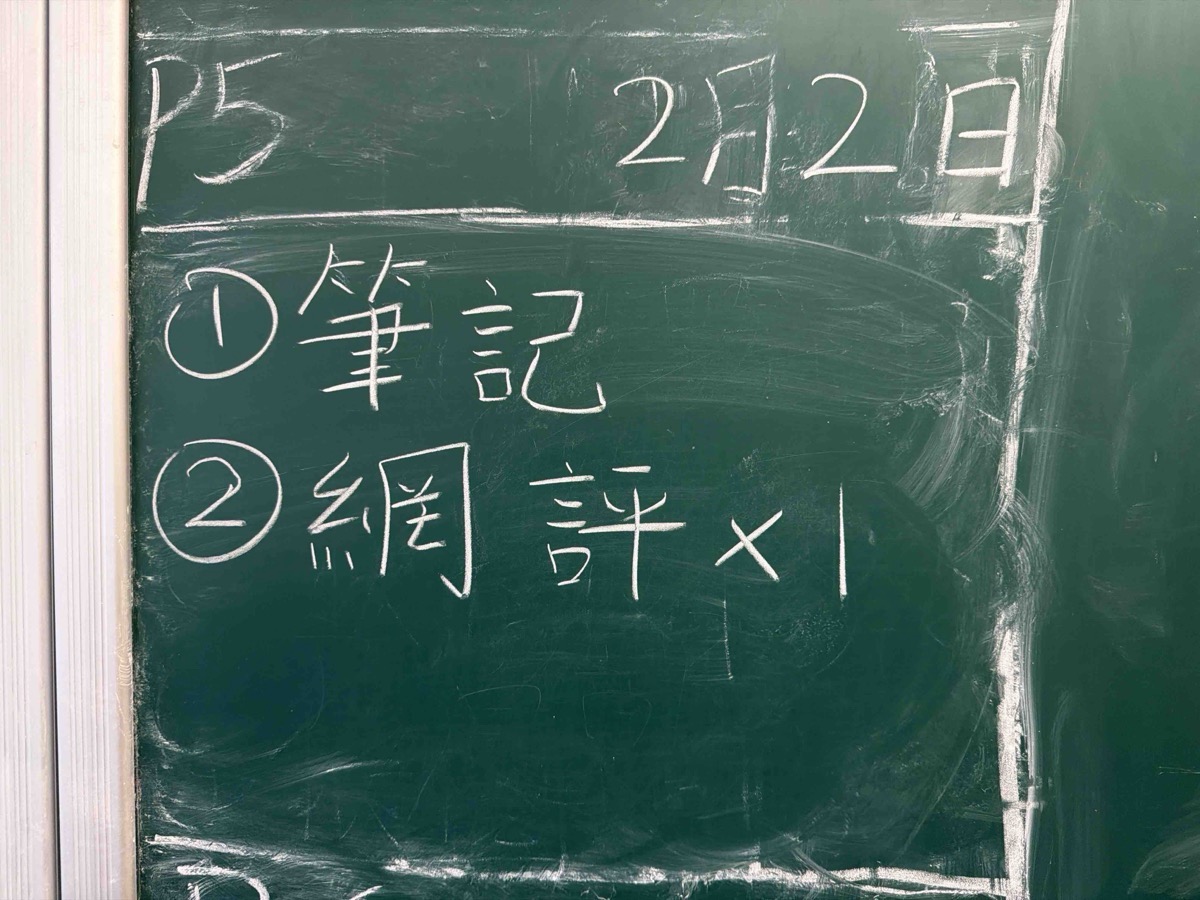 P5 2月2日
①筆記
②網評×1